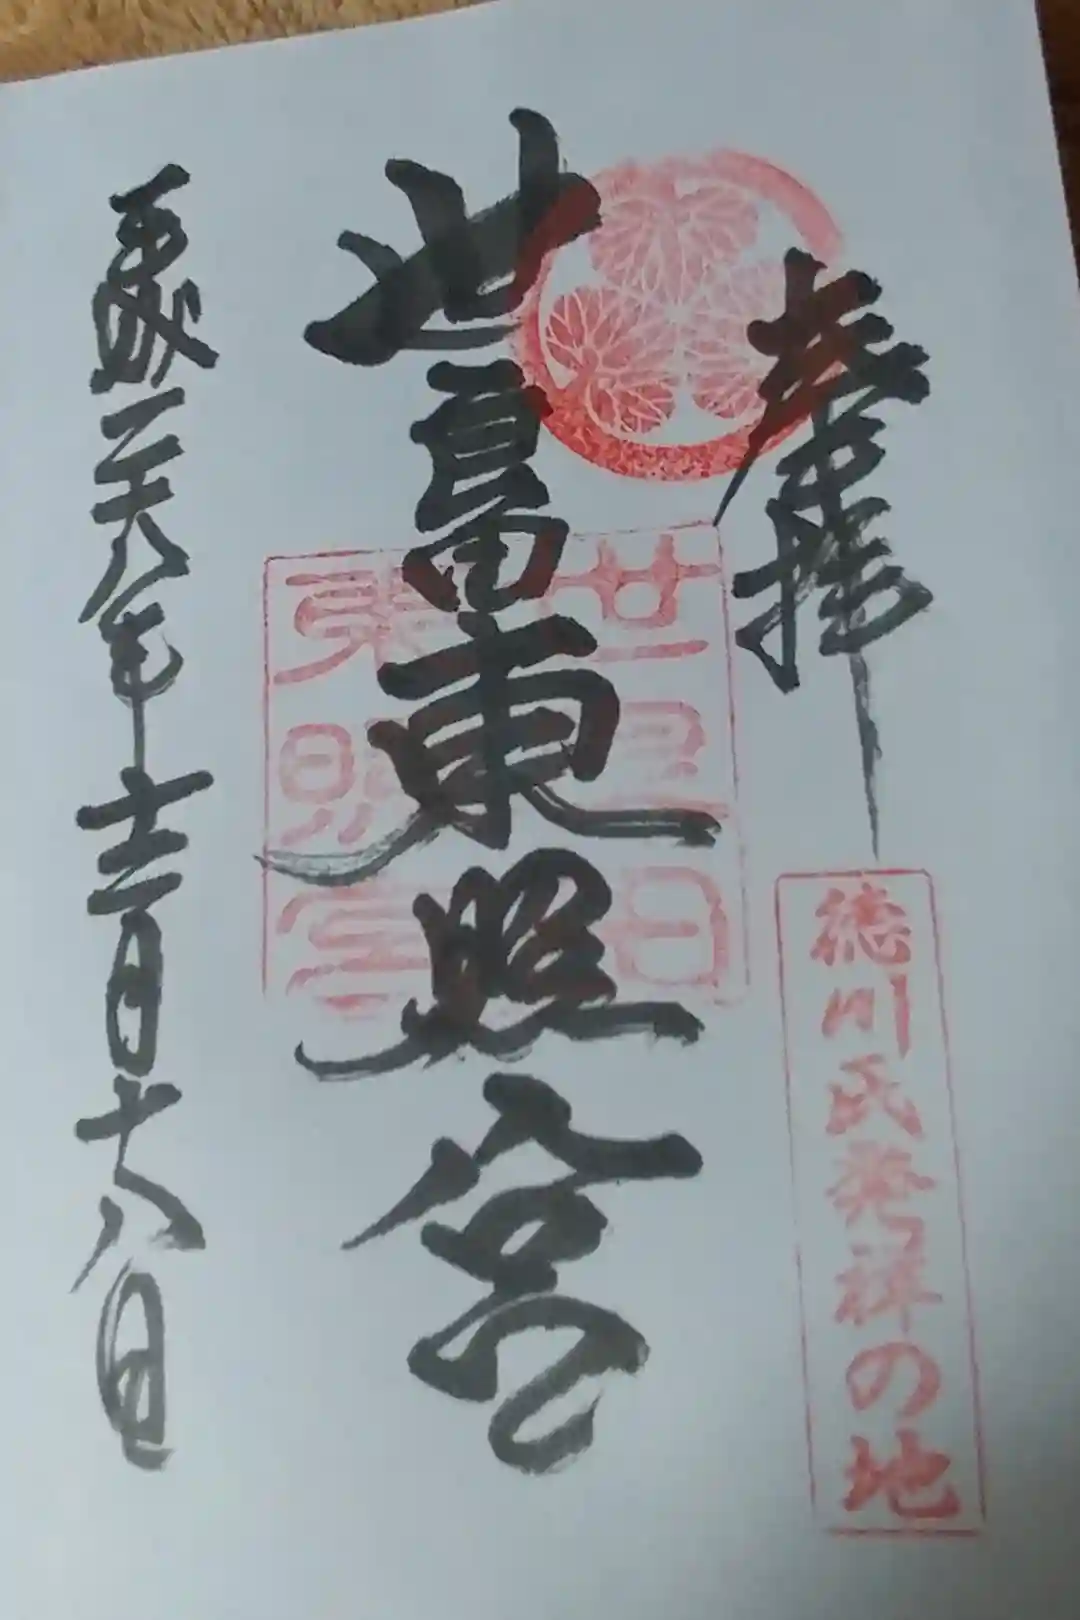 奉拝
徳川氏発祥の地
世良田東照宮
世良田
東照宮
平成二十八年十二月十八日